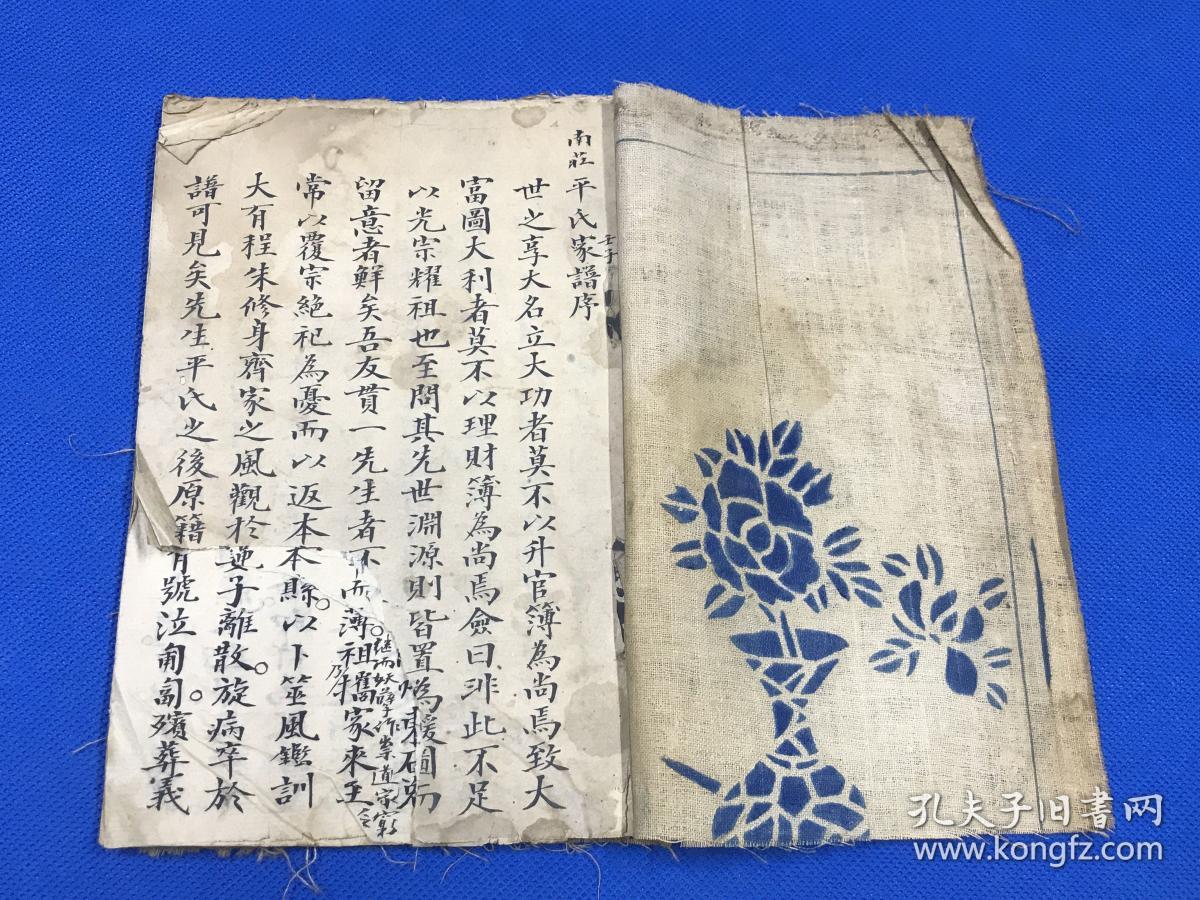 南莊平氏家譜序
壬子
世之享大名立大功者莫不以升官簿為尚焉致大
富圖大利者莫不以理財簿為尚焉僉曰非此不足
以光宗耀祖也至問其先世淵源則皆置為
留意者鮮矣吾友貫一先生者不
常以覆宗絕祀為憂而以返本
大有程朱修身齊家之風觀於
譜可見矣先生平氏之後原籍
而薄祖攜家來至
本縣以卜筮風鑑訓
子離散旋病卒於
號泣匍匐殯葬義
孔夫子旧書网
www.kongfz.com